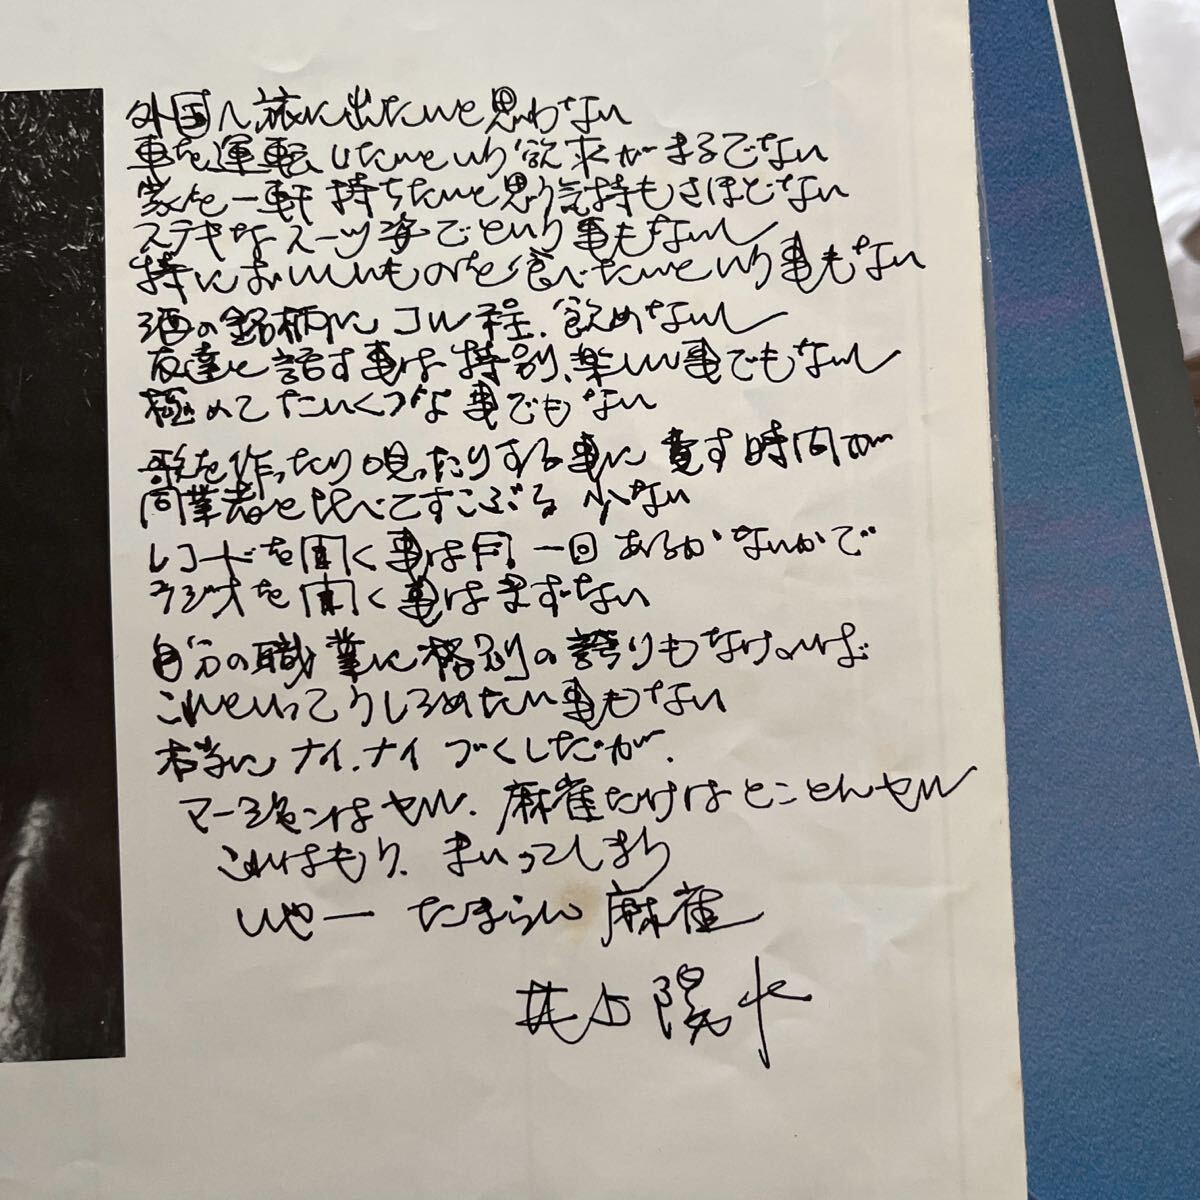 外国へ旅に出たいと思わない
車を運転したいという欲求がまるでない
家を一軒持ちたいと思う気持もさほどない
ステキなスーツ姿でという事もないし
特においしいものを食べたいという事もない
酒の銘柄にコル程、飲めないし
友達と話す事は特別、楽しい事でもないし
極めてたいくつな事でもない
歌を作ったり唄ったりする事に費す時間が
同業者と比べてすこぶる少ない
レコードを聞く事は月一回あるかないかで
ラジオを聞く事はまずない
自分の職業に格別の誇りもなければ
これといってうしろめたい事もない
本当にナイ、ナイづくしだが、
マージャンはヤル、麻雀だけはとことんヤル
これはもう、まいってしまう
いやー たまらん麻雀
井上陽水